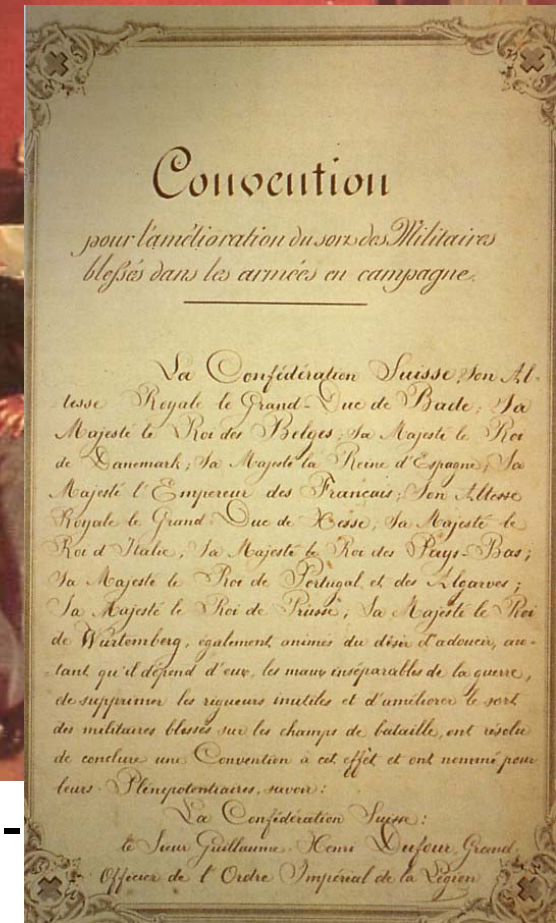 Convention
pour l'amélioration du sort des Militaires
blessés dans les armées en campagne.
La Confédération Suisse; Son Al-
tesse Royale le Grand-Duc de Bade; Sa
Majesté le Roi des Belges; Sa Majesté le Roi
de Danemark; Sa Majesté la Reine d'Espagne; Sa
Majesté l'Empereur des Français; Son Altesse
Royale le Grand-Duc de Hesse; Sa Majesté le
Roi d'Italie; Sa Majesté le Roi des Pays-Bas;
Sa Majesté le Roi de Portugal et des Algarves;
Sa Majesté le Roi de Prusse, Sa Majesté le Roi
de Wurtemberg, également animés du désir d'adoucir, au-
tant qu'il dépend d'eux, les maux inséparables de la guerre,
de supprimer les rigueurs inutiles et d'améliorer le sort
des militaires blessés sur les champs de bataille, ont résolu
de conclure une Convention à cet effet et ont nommé pour
leurs Plénipotentiaires, savoir:
La Confédération Suisse:
le Sieur Guillaume-Henri Dufour, Grand
Officier de l'Ordre Impérial de la Légion